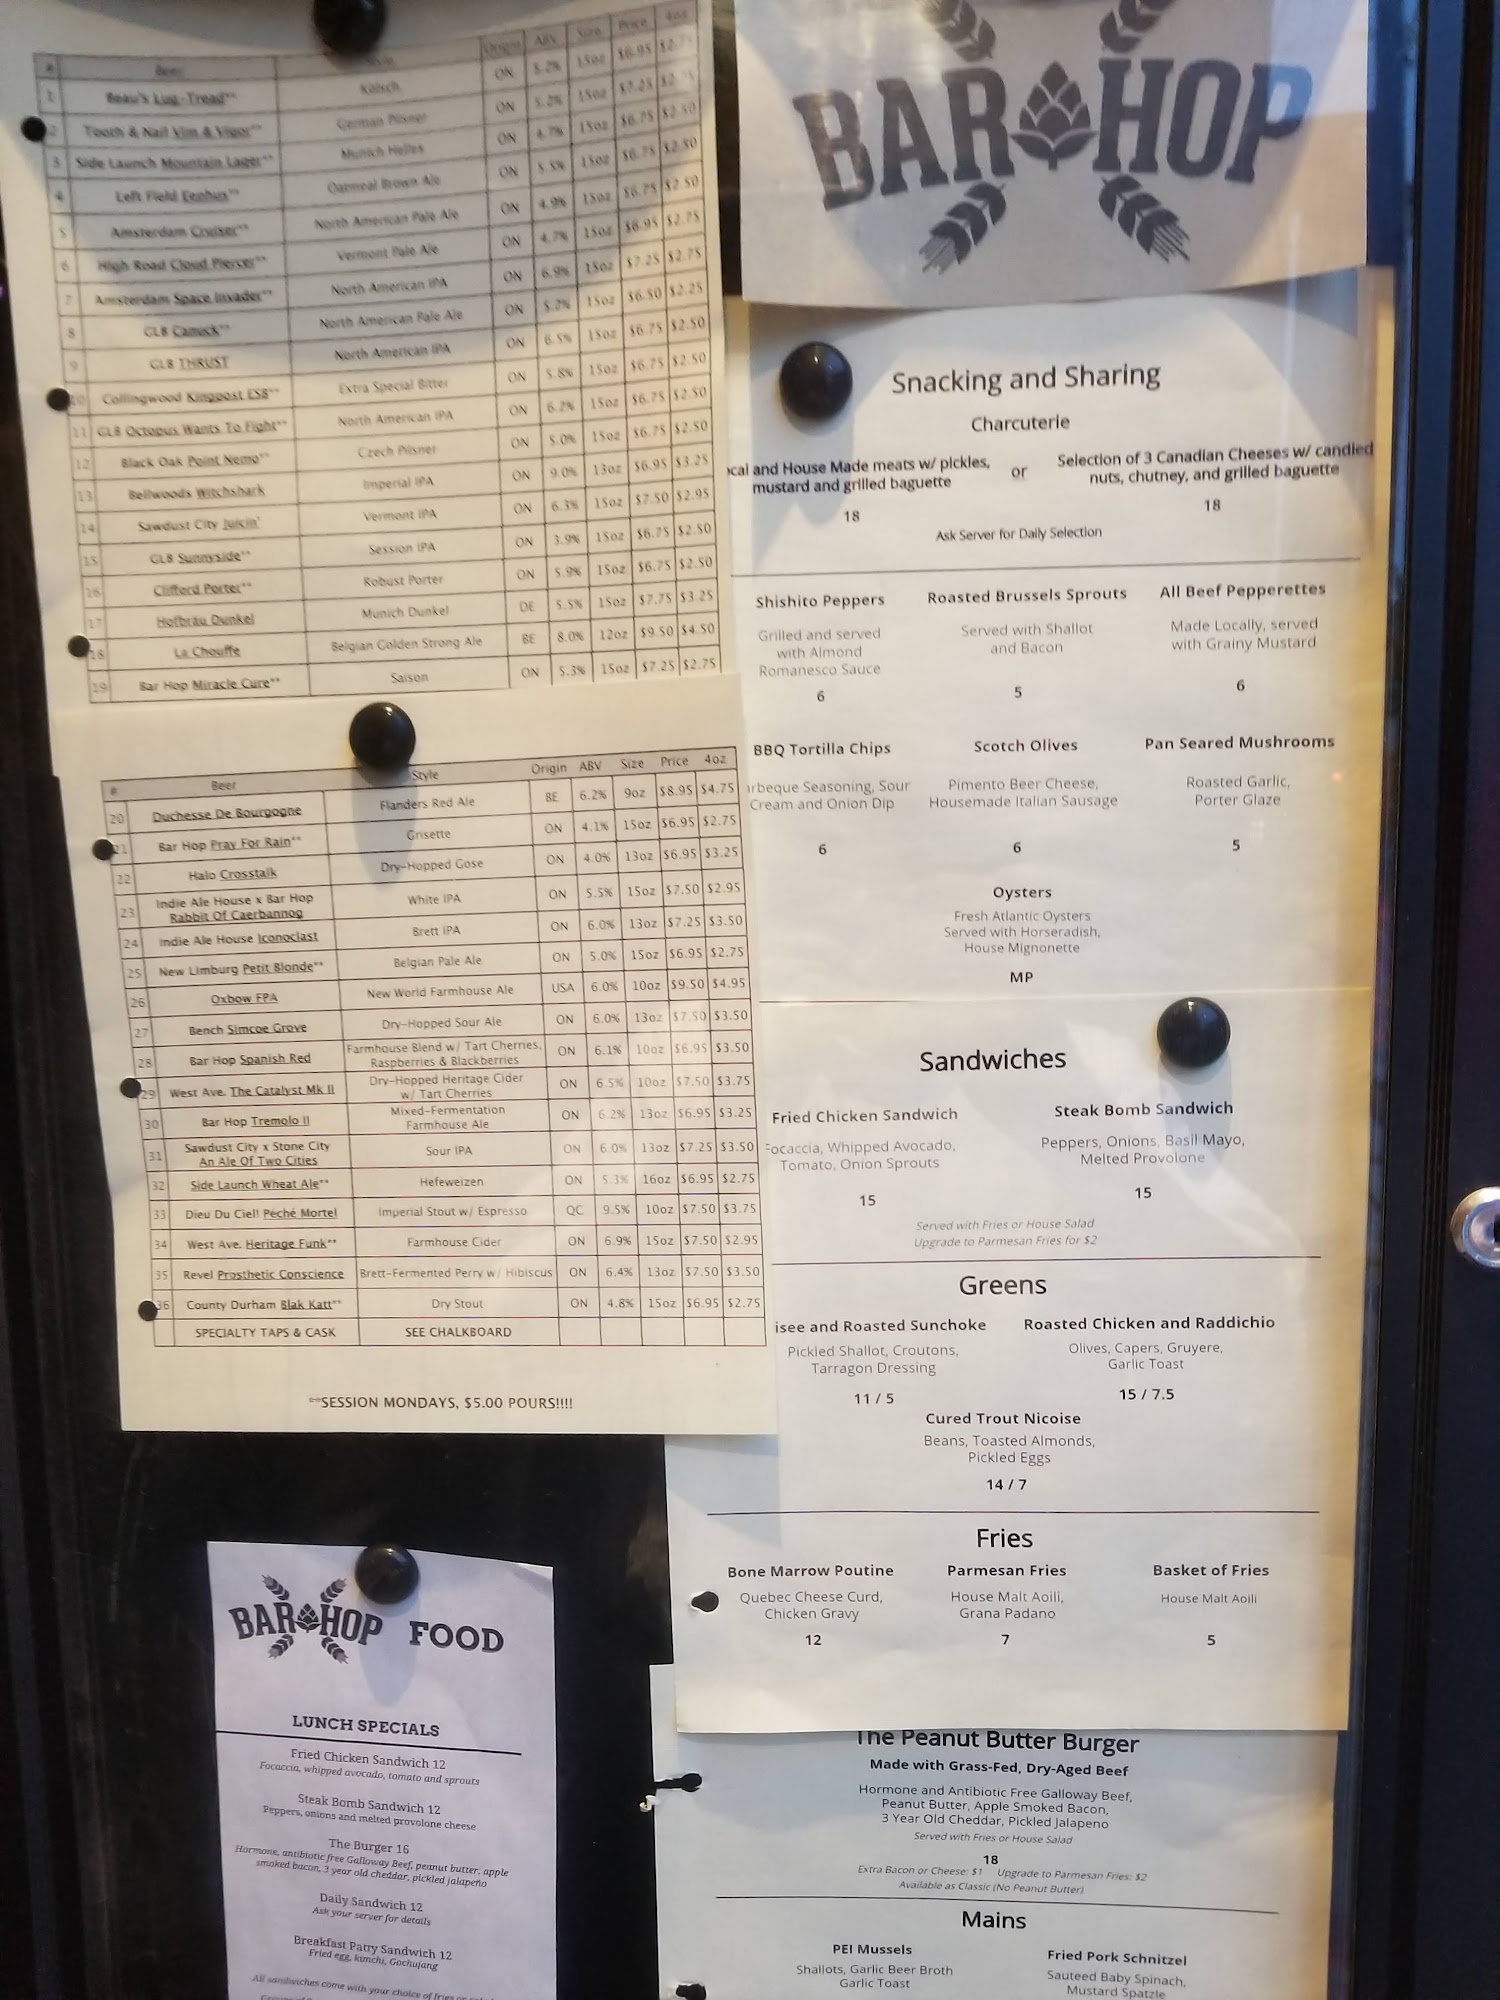 # Beer Style Origin ABV Size Price 4oz
1 Beau's Lug-Tread** Kölsch ON 5.2% 15oz $6.95 $2.75
2 Tooth & Nail Vim & Vigor** German Pilsner ON 5.2% 15oz $7.25 $2.75
3 Side Launch Mountain Lager** Munich Helles ON 4.7% 15oz $6.75 $2.50
4 Left Field Eephus** Oatmeal Brown Ale ON 5.5% 15oz $6.75 $2.50
5 Amsterdam Cruiser** North American Pale Ale ON 4.9% 15oz $6.75 $2.50
6 High Road Cloud Piercer** Vermont Pale Ale ON 4.7% 15oz $6.95 $2.75
7 Amsterdam Space Invader** North American IPA ON 6.9% 15oz $7.25 $2.75
8 GLB Canuck** North American Pale Ale ON 5.2% 15oz $6.50 $2.25
9 GLB THRUST North American IPA ON 6.5% 15oz $6.75 $2.50
10 Collingwood Kingpost ESB** Extra Special Bitter ON 5.8% 15oz $6.75 $2.50
11 GLB Octopus Wants To Fight** North American IPA ON 6.2% 15oz $6.75 $2.50
12 Black Oak Point Nemo** Czech Pilsner ON 5.0% 15oz $6.75 $2.50
13 Bellwoods Witchshark Imperial IPA ON 9.0% 13oz $6.95 $3.25
14 Sawdust City Juicin' Vermont IPA ON 6.3% 15oz $7.50 $2.95
15 GLB Sunnyside** Session IPA ON 3.9% 15oz $6.75 $2.50
16 Clifford Porter** Robust Porter ON 5.9% 15oz $6.75 $2.50
17 Hofbräu Dunkel Munich Dunkel DE 5.5% 15oz $7.75 $3.25
18 La Chouffe Belgian Golden Strong Ale BE 8.0% 12oz $9.50 $4.50
19 Bar Hop Miracle Cure** Saison ON 5.3% 15oz $7.25 $2.75
# Beer Style Origin ABV Size Price 4oz
20 Duchesse De Bourgogne Flanders Red Ale BE 6.2% 9oz $8.95 $4.75
21 Bar Hop Pray For Rain** Grisette ON 4.1% 15oz $6.95 $2.75
22 Halo Crosstalk Dry-Hopped Gose ON 4.0% 13oz $6.95 $3.25
23 Indie Ale House x Bar Hop
Rabbit Of Caerbannog White IPA ON 5.5% 15oz $7.50 $2.95
24 Indie Ale House Iconoclast Brett IPA ON 6.0% 13oz $7.25 $3.50
25 New Limburg Petit Blonde** Belgian Pale Ale ON 5.0% 15oz $6.95 $2.75
26 Oxbow FPA New World Farmhouse Ale USA 6.0% 10oz $9.50 $4.95
27 Bench Simcoe Grove Dry-Hopped Sour Ale ON 6.0% 13oz $7.50 $3.50
28 Bar Hop Spanish Red Farmhouse Blend w/ Tart Cherries,
Raspberries & Blackberries ON 6.1% 10oz $6.95 $3.50
29 West Ave. The Catalyst Mk II Dry-Hopped Heritage Cider
w/ Tart Cherries ON 6.5% 10oz $7.50 $3.75
30 Bar Hop Tremolo II Mixed-Fermentation
Farmhouse Ale ON 6.2% 13oz $6.95 $3.25
31 Sawdust City x Stone City
An Ale Of Two Cities Sour IPA ON 6.0% 13oz $7.25 $3.50
32 Side Launch Wheat Ale** Hefeweizen ON 5.3% 16oz $6.95 $2.75
33 Dieu Du Ciel! Péché Mortel Imperial Stout w/ Espresso QC 9.5% 10oz $7.50 $3.75
34 West Ave. Heritage Funk** Farmhouse Cider ON 6.9% 15oz $7.50 $2.95
35 Revel Prosthetic Conscience Brett-Fermented Perry w/ Hibiscus ON 6.4% 13oz $7.50 $3.50
36 County Durham Blak Katt** Dry Stout ON 4.8% 15oz $6.95 $2.75
SPECIALTY TAPS & CASK SEE CHALKBOARD
**SESSION MONDAYS, $5.00 POURS!!!!
BAR HOP FOOD
LUNCH SPECIALS
Fried Chicken Sandwich 12
Focaccia, whipped avocado, tomato and sprouts
Steak Bomb Sandwich 12
Peppers, onions and melted provolone cheese
The Burger 16
Hormone, antibiotic free Galloway Beef, peanut butter, apple
smoked bacon, 3 year old cheddar, pickled jalapeño
Daily Sandwich 12
Ask your server for details
Breakfast Patty Sandwich 12
Fried egg, kimchi, Gochujang
All sandwiches come with your choice of fries or
BAR HOP
Snacking and Sharing
Charcuterie
cal and House Made meats w/ pickles,
mustard and grilled baguette
18
or
Selection of 3 Canadian Cheeses w/ candied
nuts, chutney, and grilled baguette
18
Ask Server for Daily Selection
Shishito Peppers
Grilled and served
with Almond
Romanesco Sauce
6
Roasted Brussels Sprouts
Served with Shallot
and Bacon
5
All Beef Pepperettes
Made Locally, served
with Grainy Mustard
6
BBQ Tortilla Chips
rbeque Seasoning, Sour
Cream and Onion Dip
6
Scotch Olives
Pimento Beer Cheese,
Housemade Italian Sausage
6
Pan Seared Mushrooms
Roasted Garlic,
Porter Glaze
5
Oysters
Fresh Atlantic Oysters
Served with Horseradish,
House Mignonette
MP
Sandwiches
Fried Chicken Sandwich
Focaccia, Whipped Avocado,
Tomato, Onion Sprouts
15
Steak Bomb Sandwich
Peppers, Onions, Basil Mayo,
Melted Provolone
15
Served with Fries or House Salad
Upgrade to Parmesan Fries for $2
Greens
isee and Roasted Sunchoke
Pickled Shallot, Croutons,
Tarragon Dressing
11 / 5
Roasted Chicken and Raddichio
Olives, Capers, Gruyere,
Garlic Toast
15 / 7.5
Cured Trout Nicoise
Beans, Toasted Almonds,
Pickled Eggs
14 / 7
Fries
Bone Marrow Poutine
Quebec Cheese Curd,
Chicken Gravy
12
Parmesan Fries
House Malt Aoili,
Grana Padano
7
Basket of Fries
House Malt Aoili
5
The Peanut Butter Burger
Made with Grass-Fed, Dry-Aged Beef
Hormone and Antibiotic Free Galloway Beef,
Peanut Butter, Apple Smoked Bacon,
3 Year Old Cheddar, Pickled Jalapeno
Served with Fries or House Salad
18
Extra Bacon or Cheese: $1 Upgrade to Parmesan Fries: $2
Available as Classic (No Peanut Butter)
Mains
PEI Mussels
Shallots, Garlic Beer Broth
Garlic Toast
Fried Pork Schnitzel
Sauteed Baby Spinach,
Mustard Spatzle